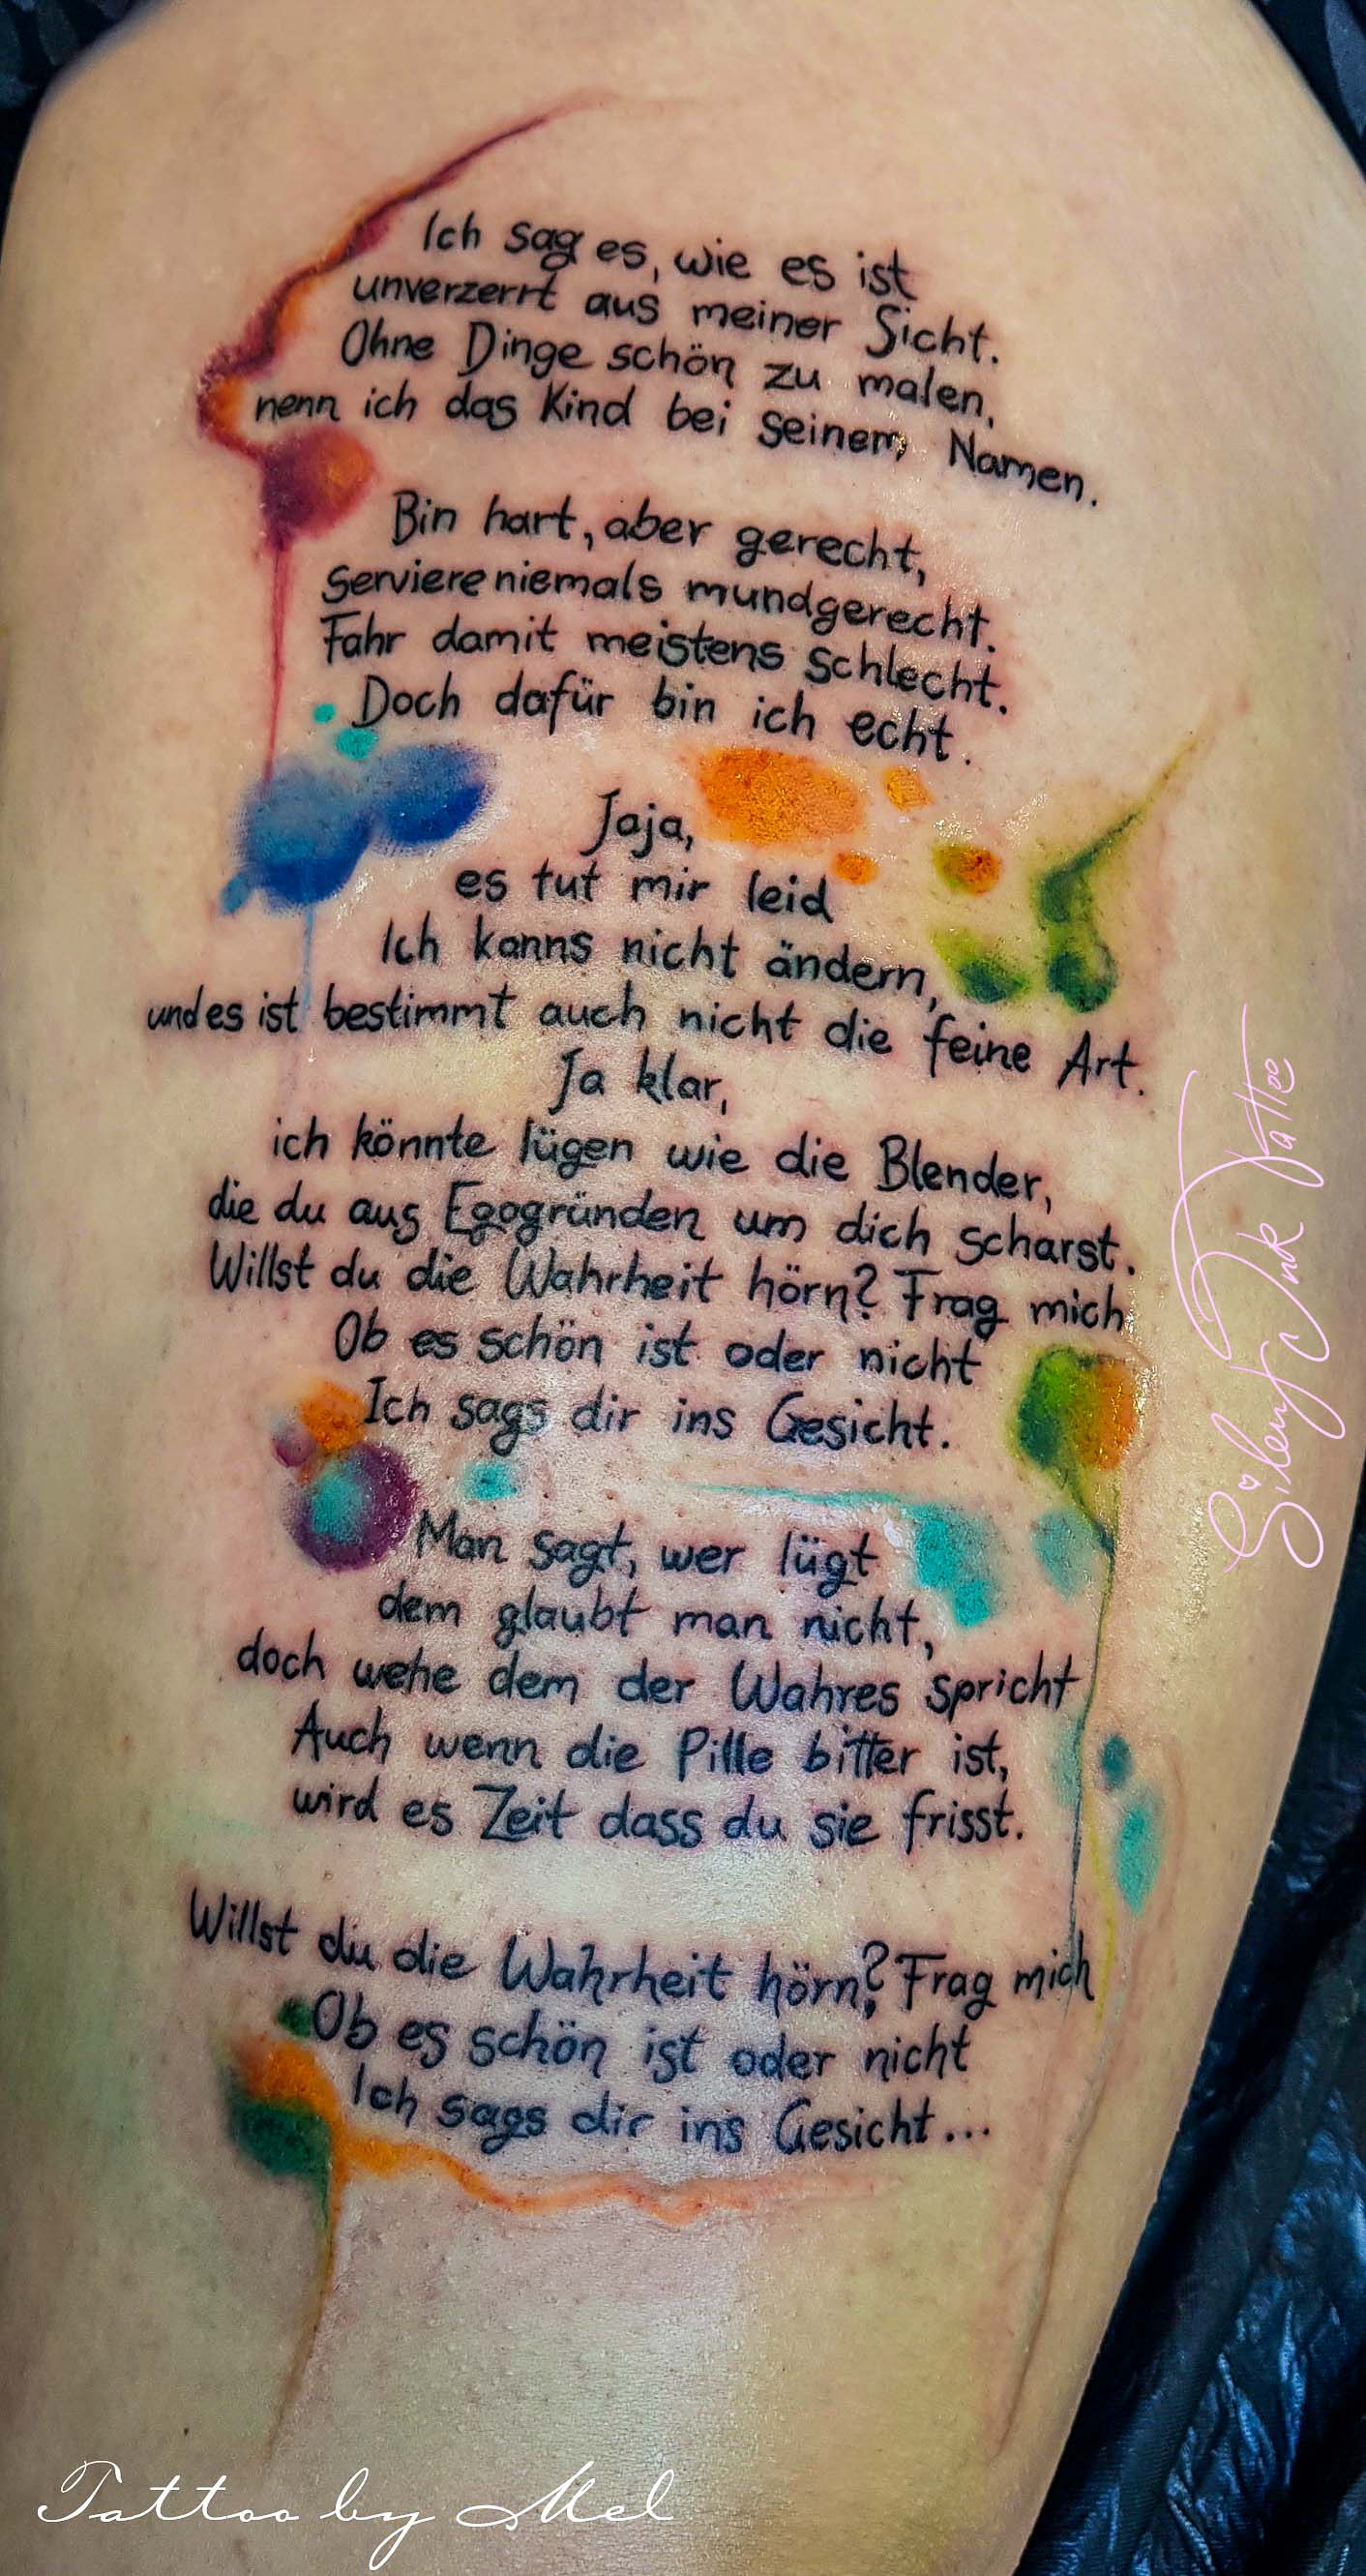 Ich sag es, wie es ist
unverzerrt aus meiner Sicht.
Ohne Dinge schön zu malen,
nenn ich das Kind bei seinem Namen.
Bin hart, aber gerecht,
serviere niemals mundgerecht.
Fahr damit meistens schlecht.
Doch dafür bin ich echt.
Jaja,
es tut mir leid
Ich kanns nicht ändern,
und es ist bestimmt auch nicht die feine Art.
Ja klar,
ich könnte lügen wie die Blender,
die du aus Egogründen um dich scharst.
Willst du die Wahrheit hörn? Frag mich
Ob es schön ist oder nicht
Ich sags dir ins Gesicht.
Man sagt, wer lügt
dem glaubt man nicht,
doch wehe dem der Wahres spricht
Auch wenn die Pille bitter ist,
wird es Zeit dass du sie frisst.
Willst du die Wahrheit hörn? Frag mich
Ob es schön ist oder nicht
Ich sags dir ins Gesicht...
Ink Tattoo
Tattoo by Mel